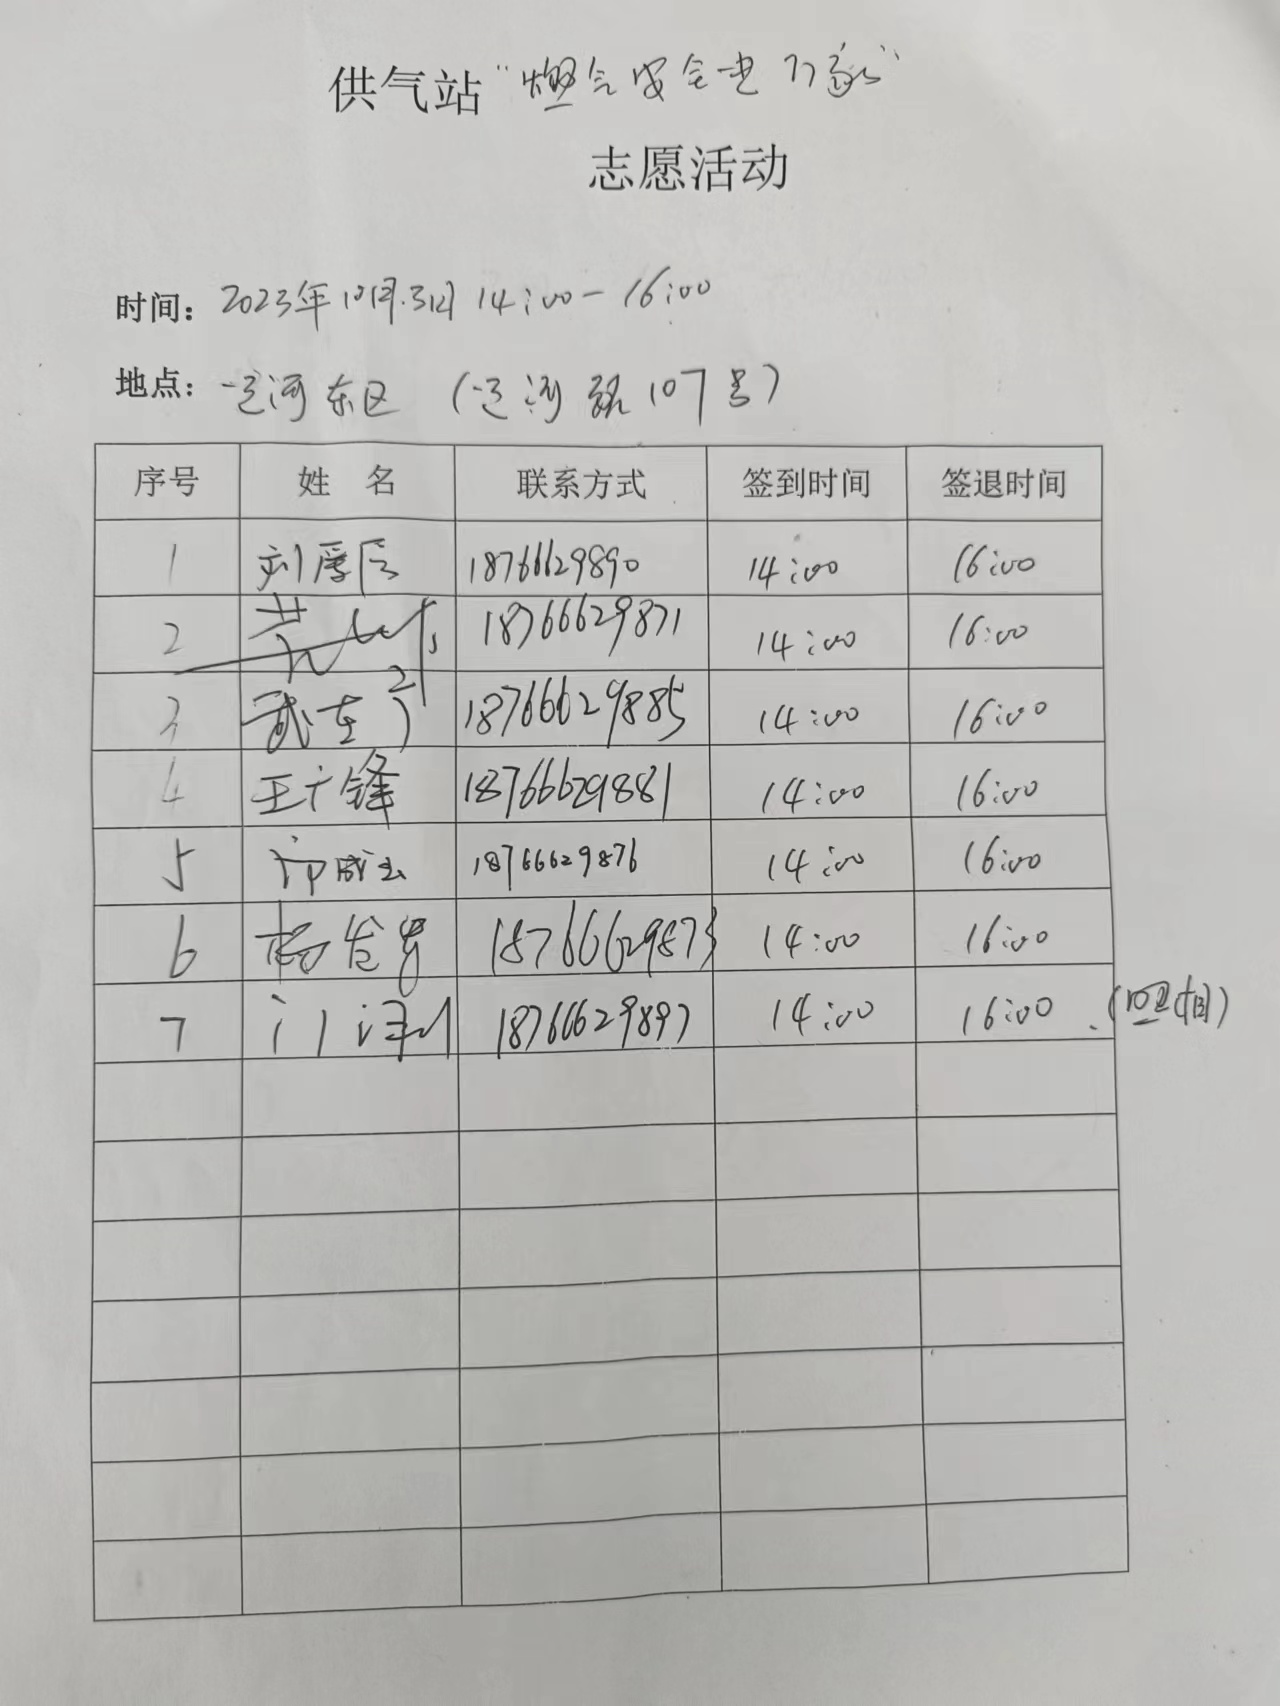 供气站“燃气安全进万家”
志愿活动
时间：2023年10月31日 14:00－16:00
地点：运河东区 （运河路107号）
序号 姓 名 联系方式 签到时间 签退时间
1 刘厚辰 18766629890 14:00 16:00
2 18766629871 14:00 16:00
3 武在 18766629885 14:00 16:00
4 王广锋 18766629881 14:00 16:00
5 18766629876 14:00 16:00
6 杨 18766629873 14:00 16:00
7 18766629897 14:00 16:00